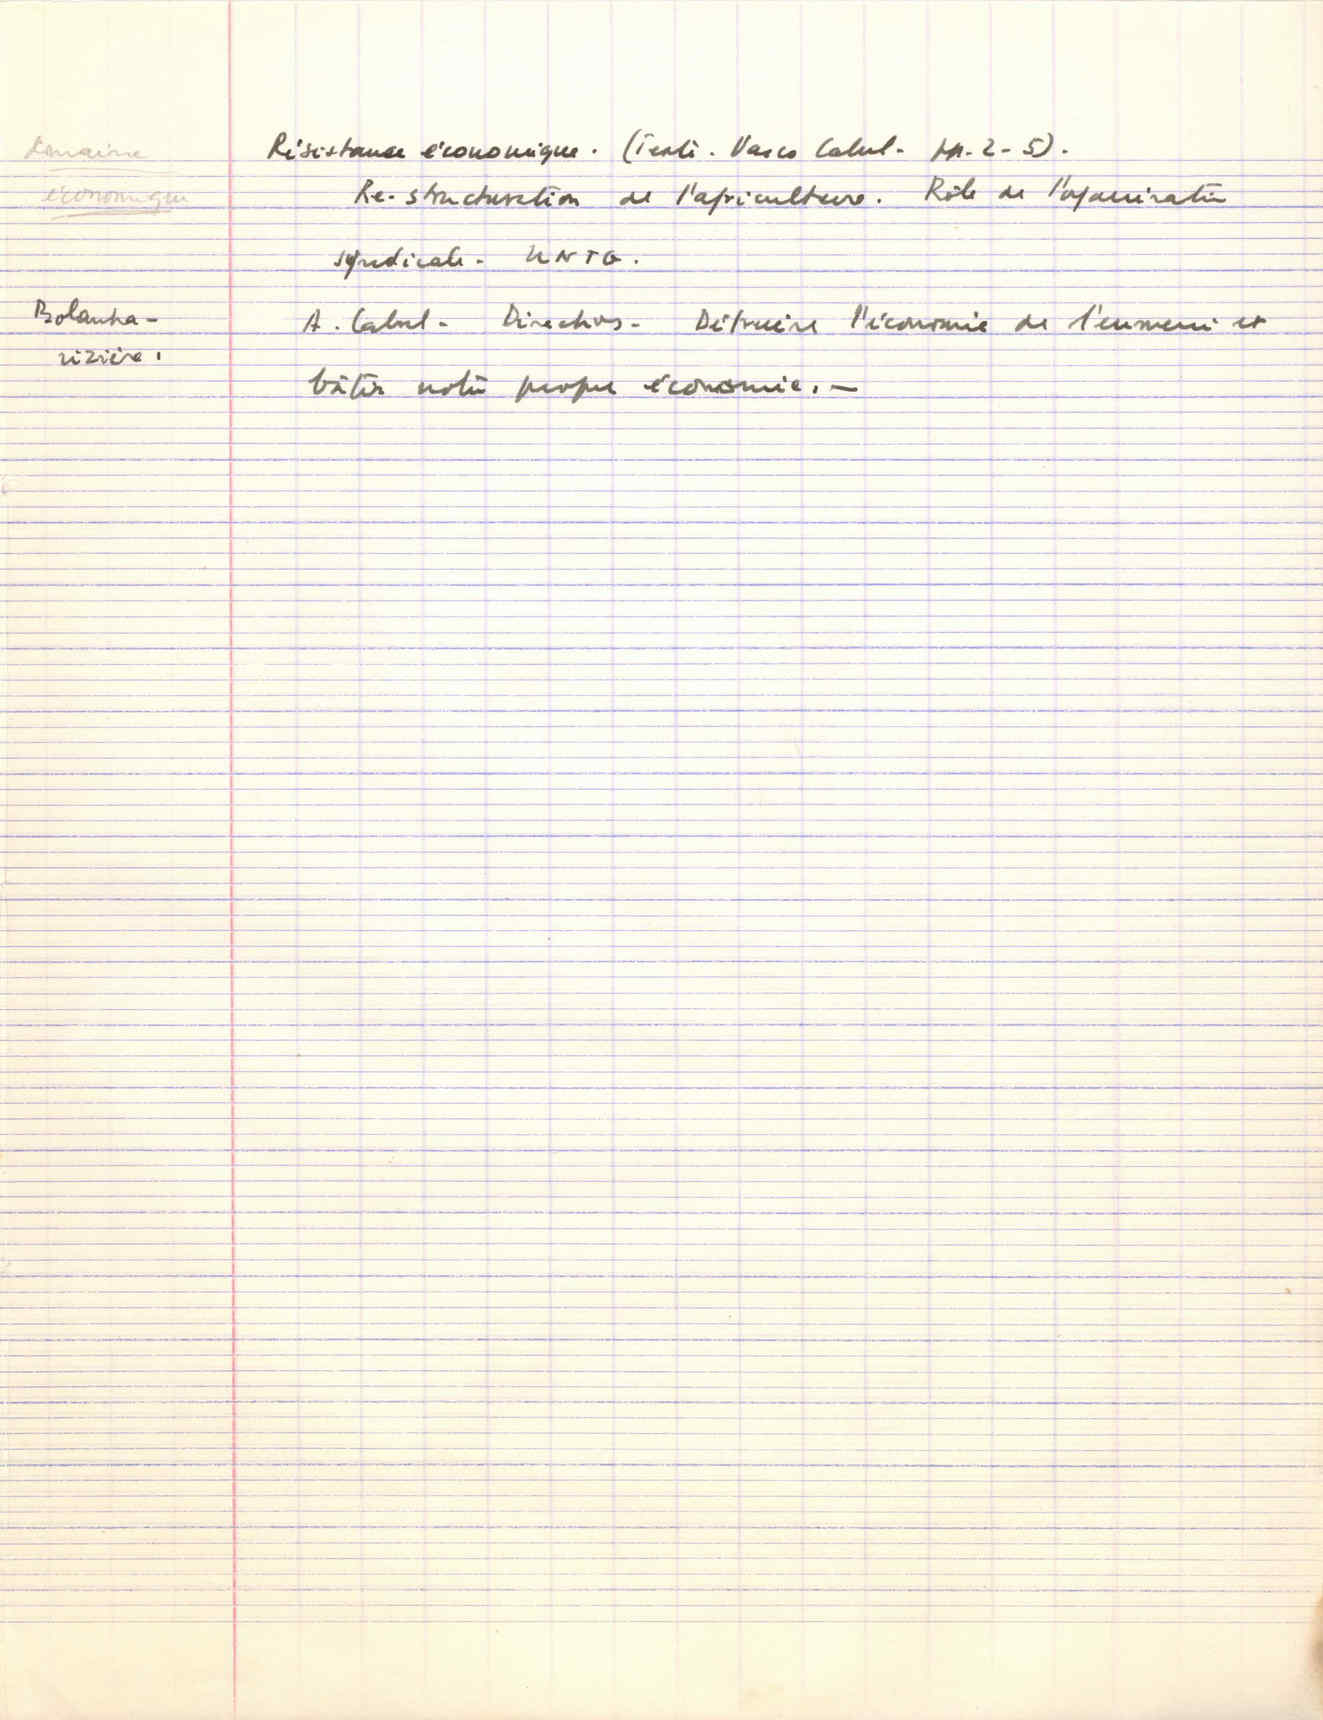 Domaine
économique
Résistance économique. (Texte. Vasco Cabral. pp. 2-5).
Re-structuration de l'agriculture. Rôle de l'organisation
syndicale - UNTG.
Bolanha -
rizière.
A. Cabral - Directivas - Détruire l'économie de l'ennemi et
bâtir notre propre économie. -